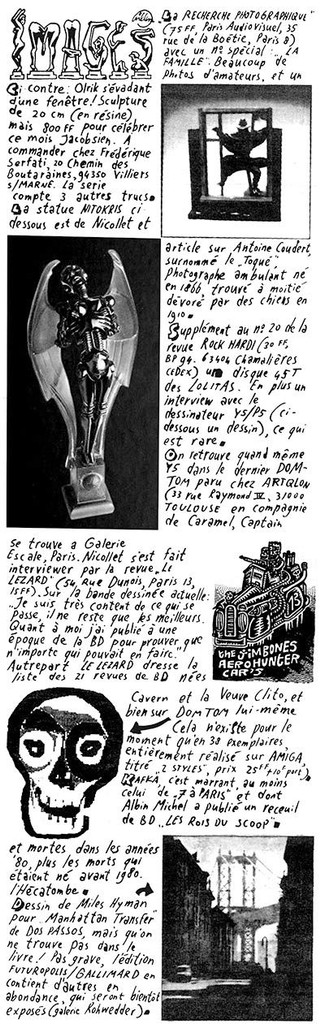 IMAGES
Willem
Ci contre: Olrik s'évadant
d'une fenêtre! Sculpture
de 20 cm (en résine)
mais 800 FF pour célébrer
ce mois Jacobsien. A
commander chez Frédérique
Sarfati, 20 Chemin des
Boutaraines, 94350 Villiers
s/MARNE. La serie
compte 3 autres trucs.
La statue NITOKRIS ci
dessous est de Nicollet et
se trouve a Galerie
Escale, Paris. Nicollet s'est fait
interviewer par la revue „Le
LEZARD" (54, Rue Dunois, Paris 13,
15FF). Sur la bande dessinée actuelle:
„Je suis très content de ce qui se
passe, il ne reste que les meilleurs.
Quant à moi j'ai publié à une
époque de la BD pour prouver que
n'importe qui pouvait en faire."!
Autrepart LE LEZARD dresse la
liste des 21 revues de BD nées
et mortes dans les années
'80, plus les morts qui
étaient né avant 1980.
l'Hécatombe.
Dessin de Miles Hyman
pour „Manhattan Transfer"
de DOS PASSOS, mais qu'on
ne trouve pas dans le
livre! Pas grave, l'édition
FUTUROPOLIS/GALLIMARD en
contient d'autres en
abondance, qui seront bientôt
exposés (galerie Rohwedder).
La RECHERCHE PHOTOGRAPHIQUE"
(75 FF, Paris Audiovisuel, 35
rue de la Boëtie, Paris 8)
avec un n° spécial: „LA
FAMILLE". Beaucoup de
photos d'amateurs, et un
article sur Antoine Coudert,
surnommé le „Toqué"
photographe ambulant né
en 1866, trouvé à moitié
dévoré par des chiens en
1910.
Supplément au n° 20 de la
revue ROCK HARDI (30 FF,
BP 94. 63404 Chamalières
CEDEX) un disque 45T
des LOLITAS. En plus un
interview avec le
dessinateur Y5/P5 (ci-
dessous un dessin), ce qui
est rare.
On retrouve quand même
Y5 dans le dernier DOM-
TOM paru chez ARTQLON
(33 rue Raymond IV, 31000
TOULOUSE en compagnie
de Caramel, Captain
the JiMBONES
AEROHUNGER
CARTS
13
Cavern et la Veuve Clito, et
bien sur DOMTOM lui-même
Cela n'existe pour le
moment qu'en 30 exemplaires,
entièrement réalisé sur AMIGA,
titré „2 STYLES", prix 25FF+10F port).
KAFKA, c'est marrant, au moins
celui de „7 à PARIS" et dont
Albin Michel a publié un receuil
de BD „LES ROIS DU SCOOP".